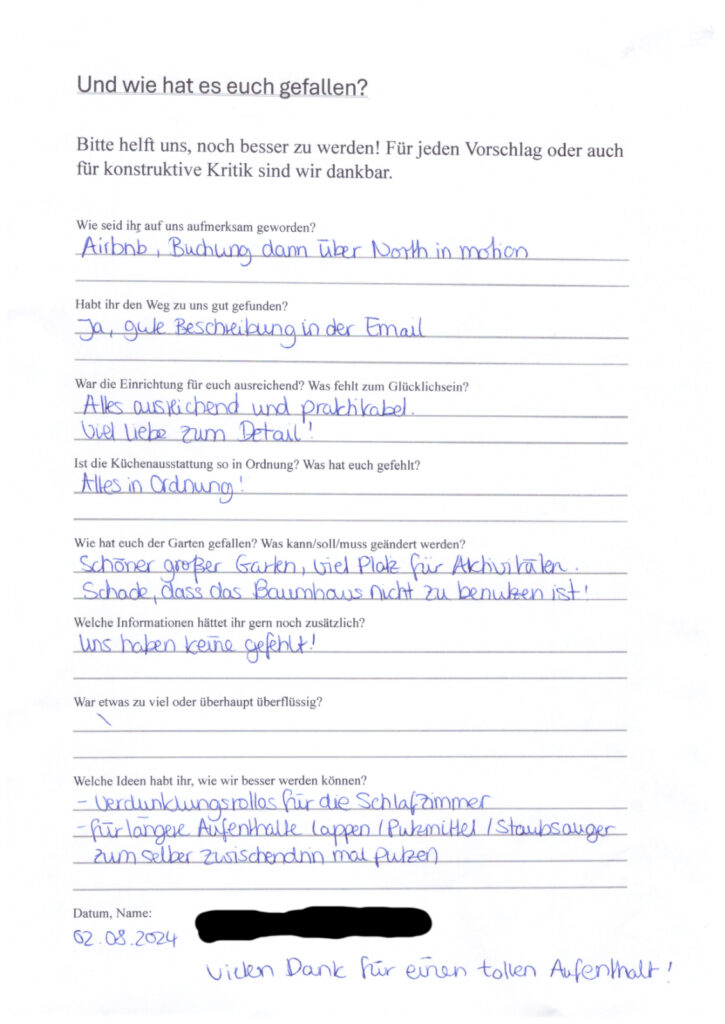 Und wie hat es euch gefallen?
Bitte helft uns, noch besser zu werden! Für jeden Vorschlag oder auch
für konstruktive Kritik sind wir dankbar.
Wie seid ihr auf uns aufmerksam geworden?
Airbnb, Buchung dann über North in motion
Habt ihr den Weg zu uns gut gefunden?
Ja, gute Beschreibung in der Email
War die Einrichtung für euch ausreichend? Was fehlt zum Glücklichsein?
Alles ausreichend und praktikabel.
Viel Liebe zum Detail!
Ist die Küchenausstattung so in Ordnung? Was hat euch gefehlt?
Alles in Ordnung!
Wie hat euch der Garten gefallen? Was kann/soll/muss geändert werden?
Schöner großer Garten, viel Platz für Aktivitäten.
Schade, dass das Baumhaus nicht zu benutzen ist!
Welche Informationen hättet ihr gern noch zusätzlich?
Uns haben keine gefehlt!
War etwas zu viel oder überhaupt überflüssig?
\
Welche Ideen habt ihr, wie wir besser werden können?
- Verdunklungsrollos für die Schlafzimmer
- für längere Aufenthalte Lappen / Putzmittel / Staubsauger
zum selber zwischendrin mal putzen
Datum, Name:
02.08.2024
Vielen Dank für einen tollen Aufenthalt!